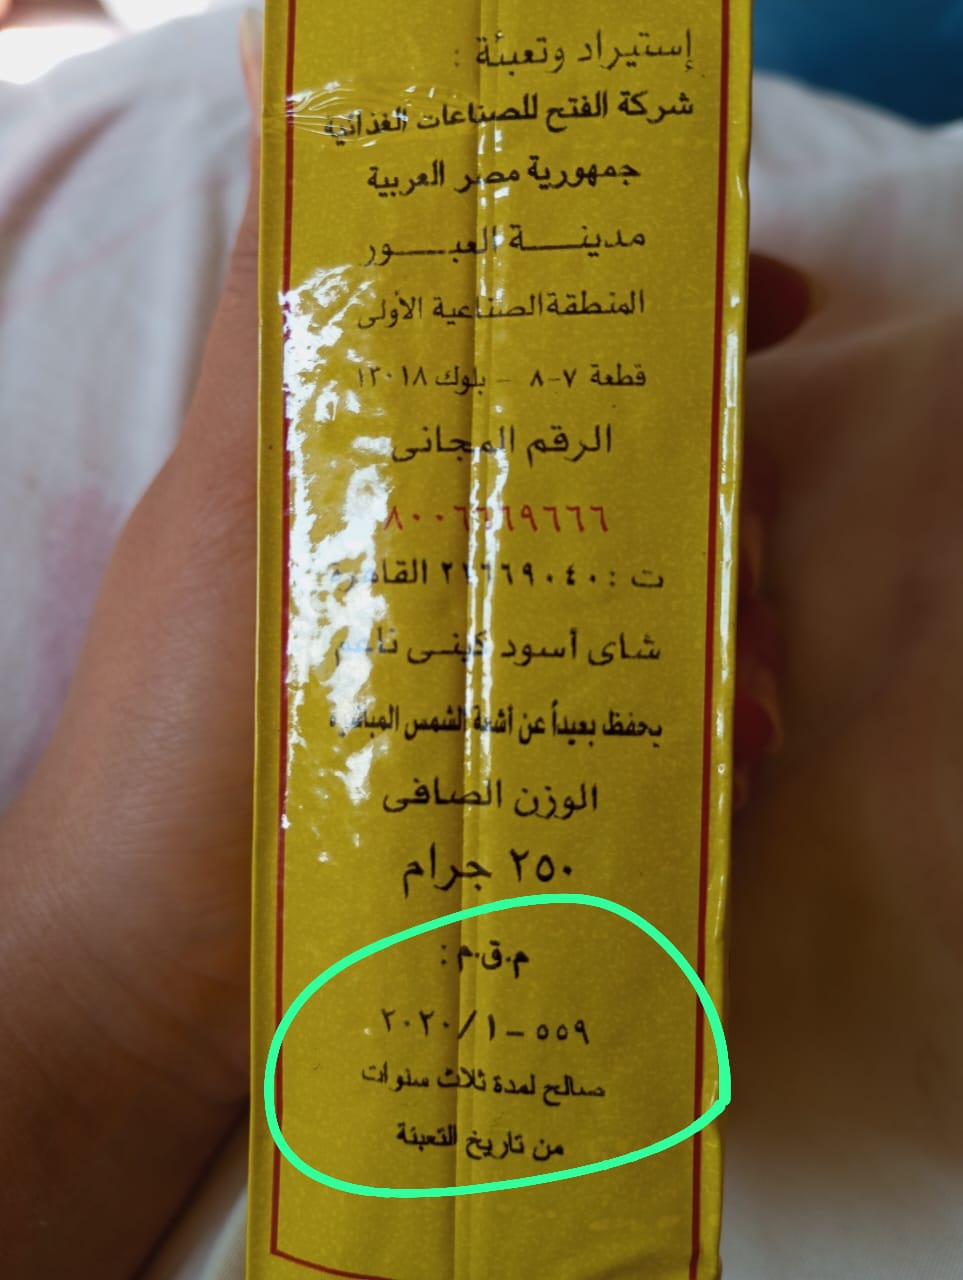 إستيراد وتعبئة :
شركة الفتح للصناعات الغذائية
جمهورية مصر العربية
مدينـــة العبـــور
المنطقة الصناعية الأولى
قطعة ٧-٨ - بلوك ١٢٠١٨
الرقم المجانى
٨٠٠٦٦٦٩٦٦٦
ت : ٢١٦٦٩٠٤٠ القاهرة
شاى أسود كينـى ناعم
يحفظ بعيداً عن أشعة الشمس المباشرة
الوزن الصافى
٢٥٠ جرام
م.ق.م :
٥٥٩-١/٢٠٢٠
صالح لمدة ثلاث سنوات
من تاريخ التعبئة